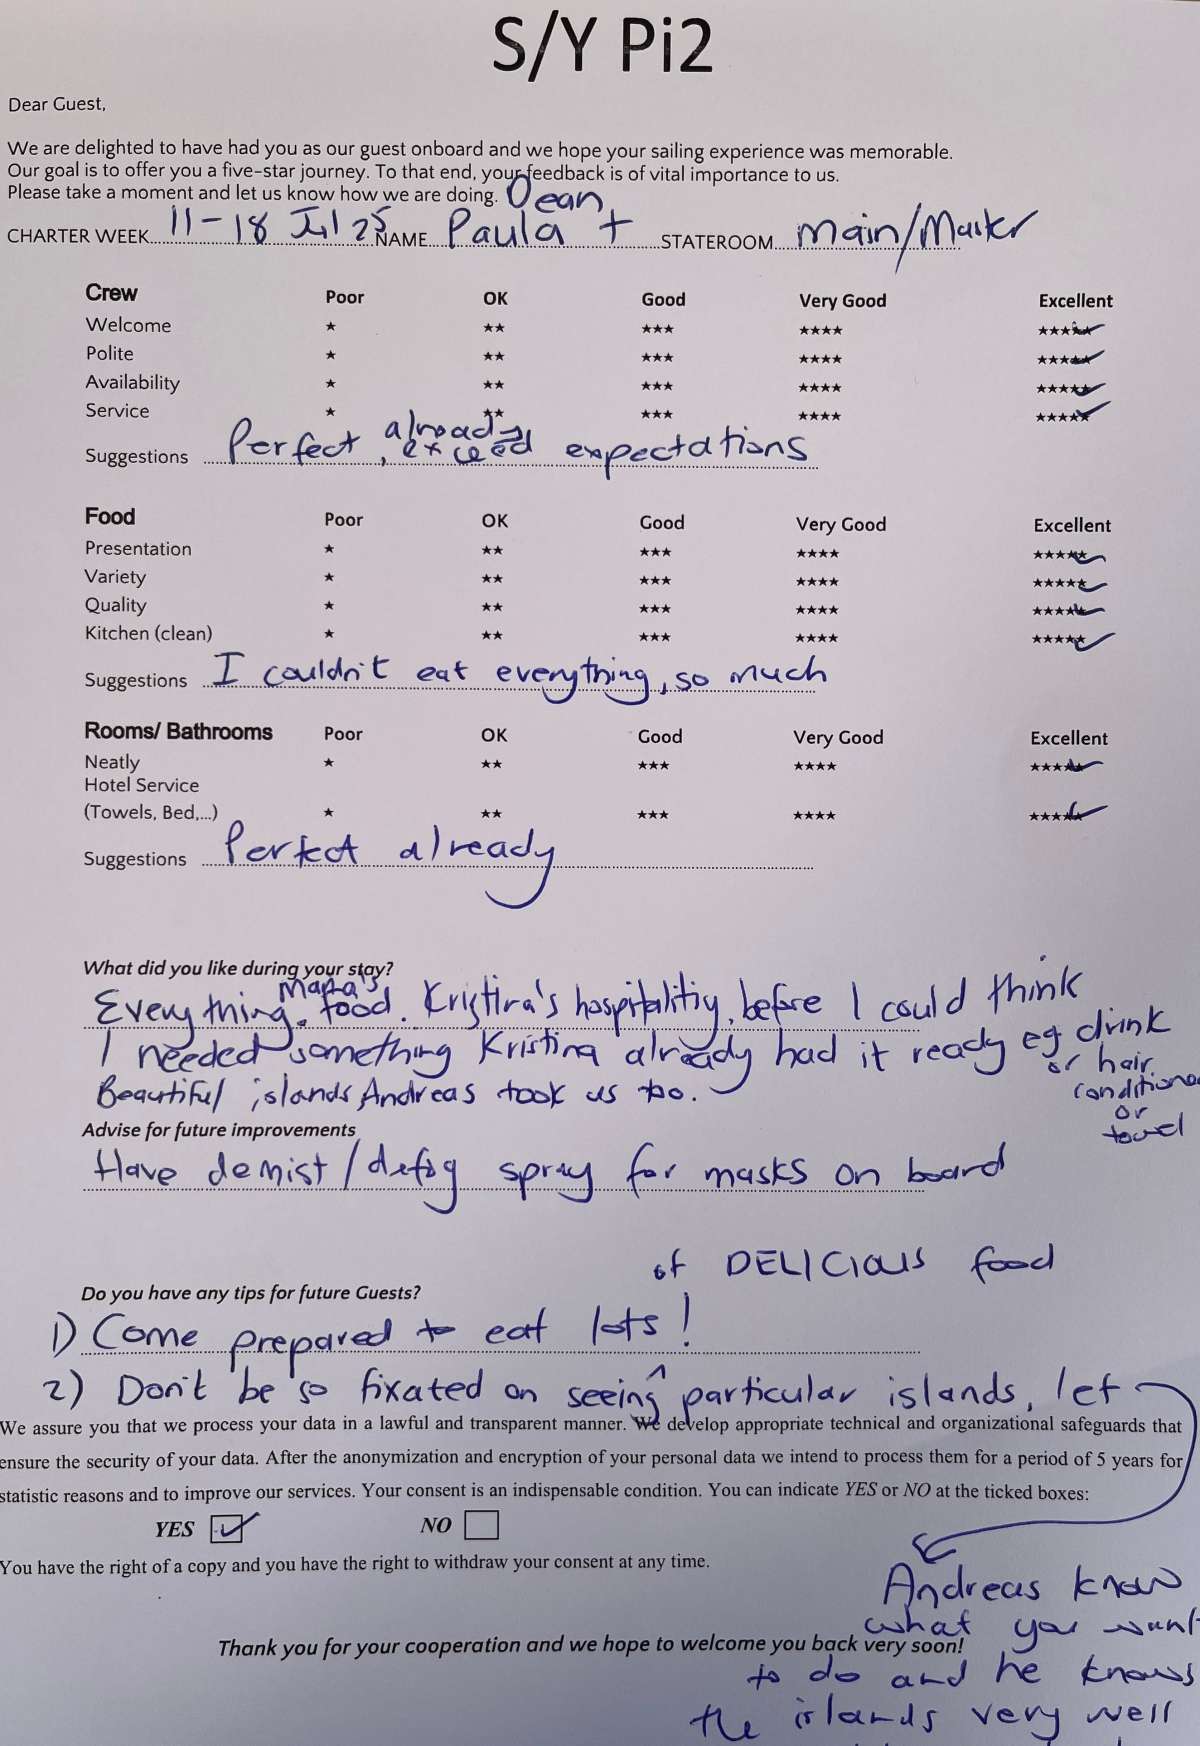 S/Y Pi2
Dear Guest,
We are delighted to have had you as our guest onboard and we hope your sailing experience was memorable.
Our goal is to offer you a five-star journey. To that end, your feedback is of vital importance to us.
Please take a moment and let us know how we are doing.
CHARTER WEEK 11-18 Jul 25 NAME Paula + Dean STATEROOM main/Master
Crew Poor OK Good Very Good Excellent
Welcome ★ ★★ ★★★ ★★★★ ★★★★★ ✓
Polite ★ ★★ ★★★ ★★★★ ★★★★★ ✓
Availability ★ ★★ ★★★ ★★★★ ★★★★★ ✓
Service ★ ★★ ★★★ ★★★★ ★★★★★ ✓
Suggestions Perfect, already exceed expectations
Food Poor OK Good Very Good Excellent
Presentation ★ ★★ ★★★ ★★★★ ★★★★★ ✓
Variety ★ ★★ ★★★ ★★★★ ★★★★★ ✓
Quality ★ ★★ ★★★ ★★★★ ★★★★★ ✓
Kitchen (clean) ★ ★★ ★★★ ★★★★ ★★★★★ ✓
Suggestions I couldn't eat everything, so much
Rooms/ Bathrooms Poor OK Good Very Good Excellent
Neatly ★ ★★ ★★★ ★★★★ ★★★★★ ✓
Hotel Service
(Towels, Bed,...) ★ ★★ ★★★ ★★★★ ★★★★★ ✓
Suggestions Perfect already
What did you like during your stay?
Everything. Maria's food. Kristina's hospitalitiy, before I could think
I needed something Kristina already had it ready eg drink
or hair
conditioner
or
towel
Beautiful islands Andreas took us too.
Advise for future improvements
Have demist/defog spray for masks on board
Do you have any tips for future Guests?
1) Come prepared to eat lots! of DELICIOUS food
2) Don't be so fixated on seeing particular islands, let
We assure you that we process your data in a lawful and transparent manner. We develop appropriate technical and organizational safeguards that
ensure the security of your data. After the anonymization and encryption of your personal data we intend to process them for a period of 5 years for
statistic reasons and to improve our services. Your consent is an indispensable condition. You can indicate YES or NO at the ticked boxes:
YES ✓ NO
You have the right of a copy and you have the right to withdraw your consent at any time.
Andreas know
what you want
to do and he knows
the islands very well
Thank you for your cooperation and we hope to welcome you back very soon!